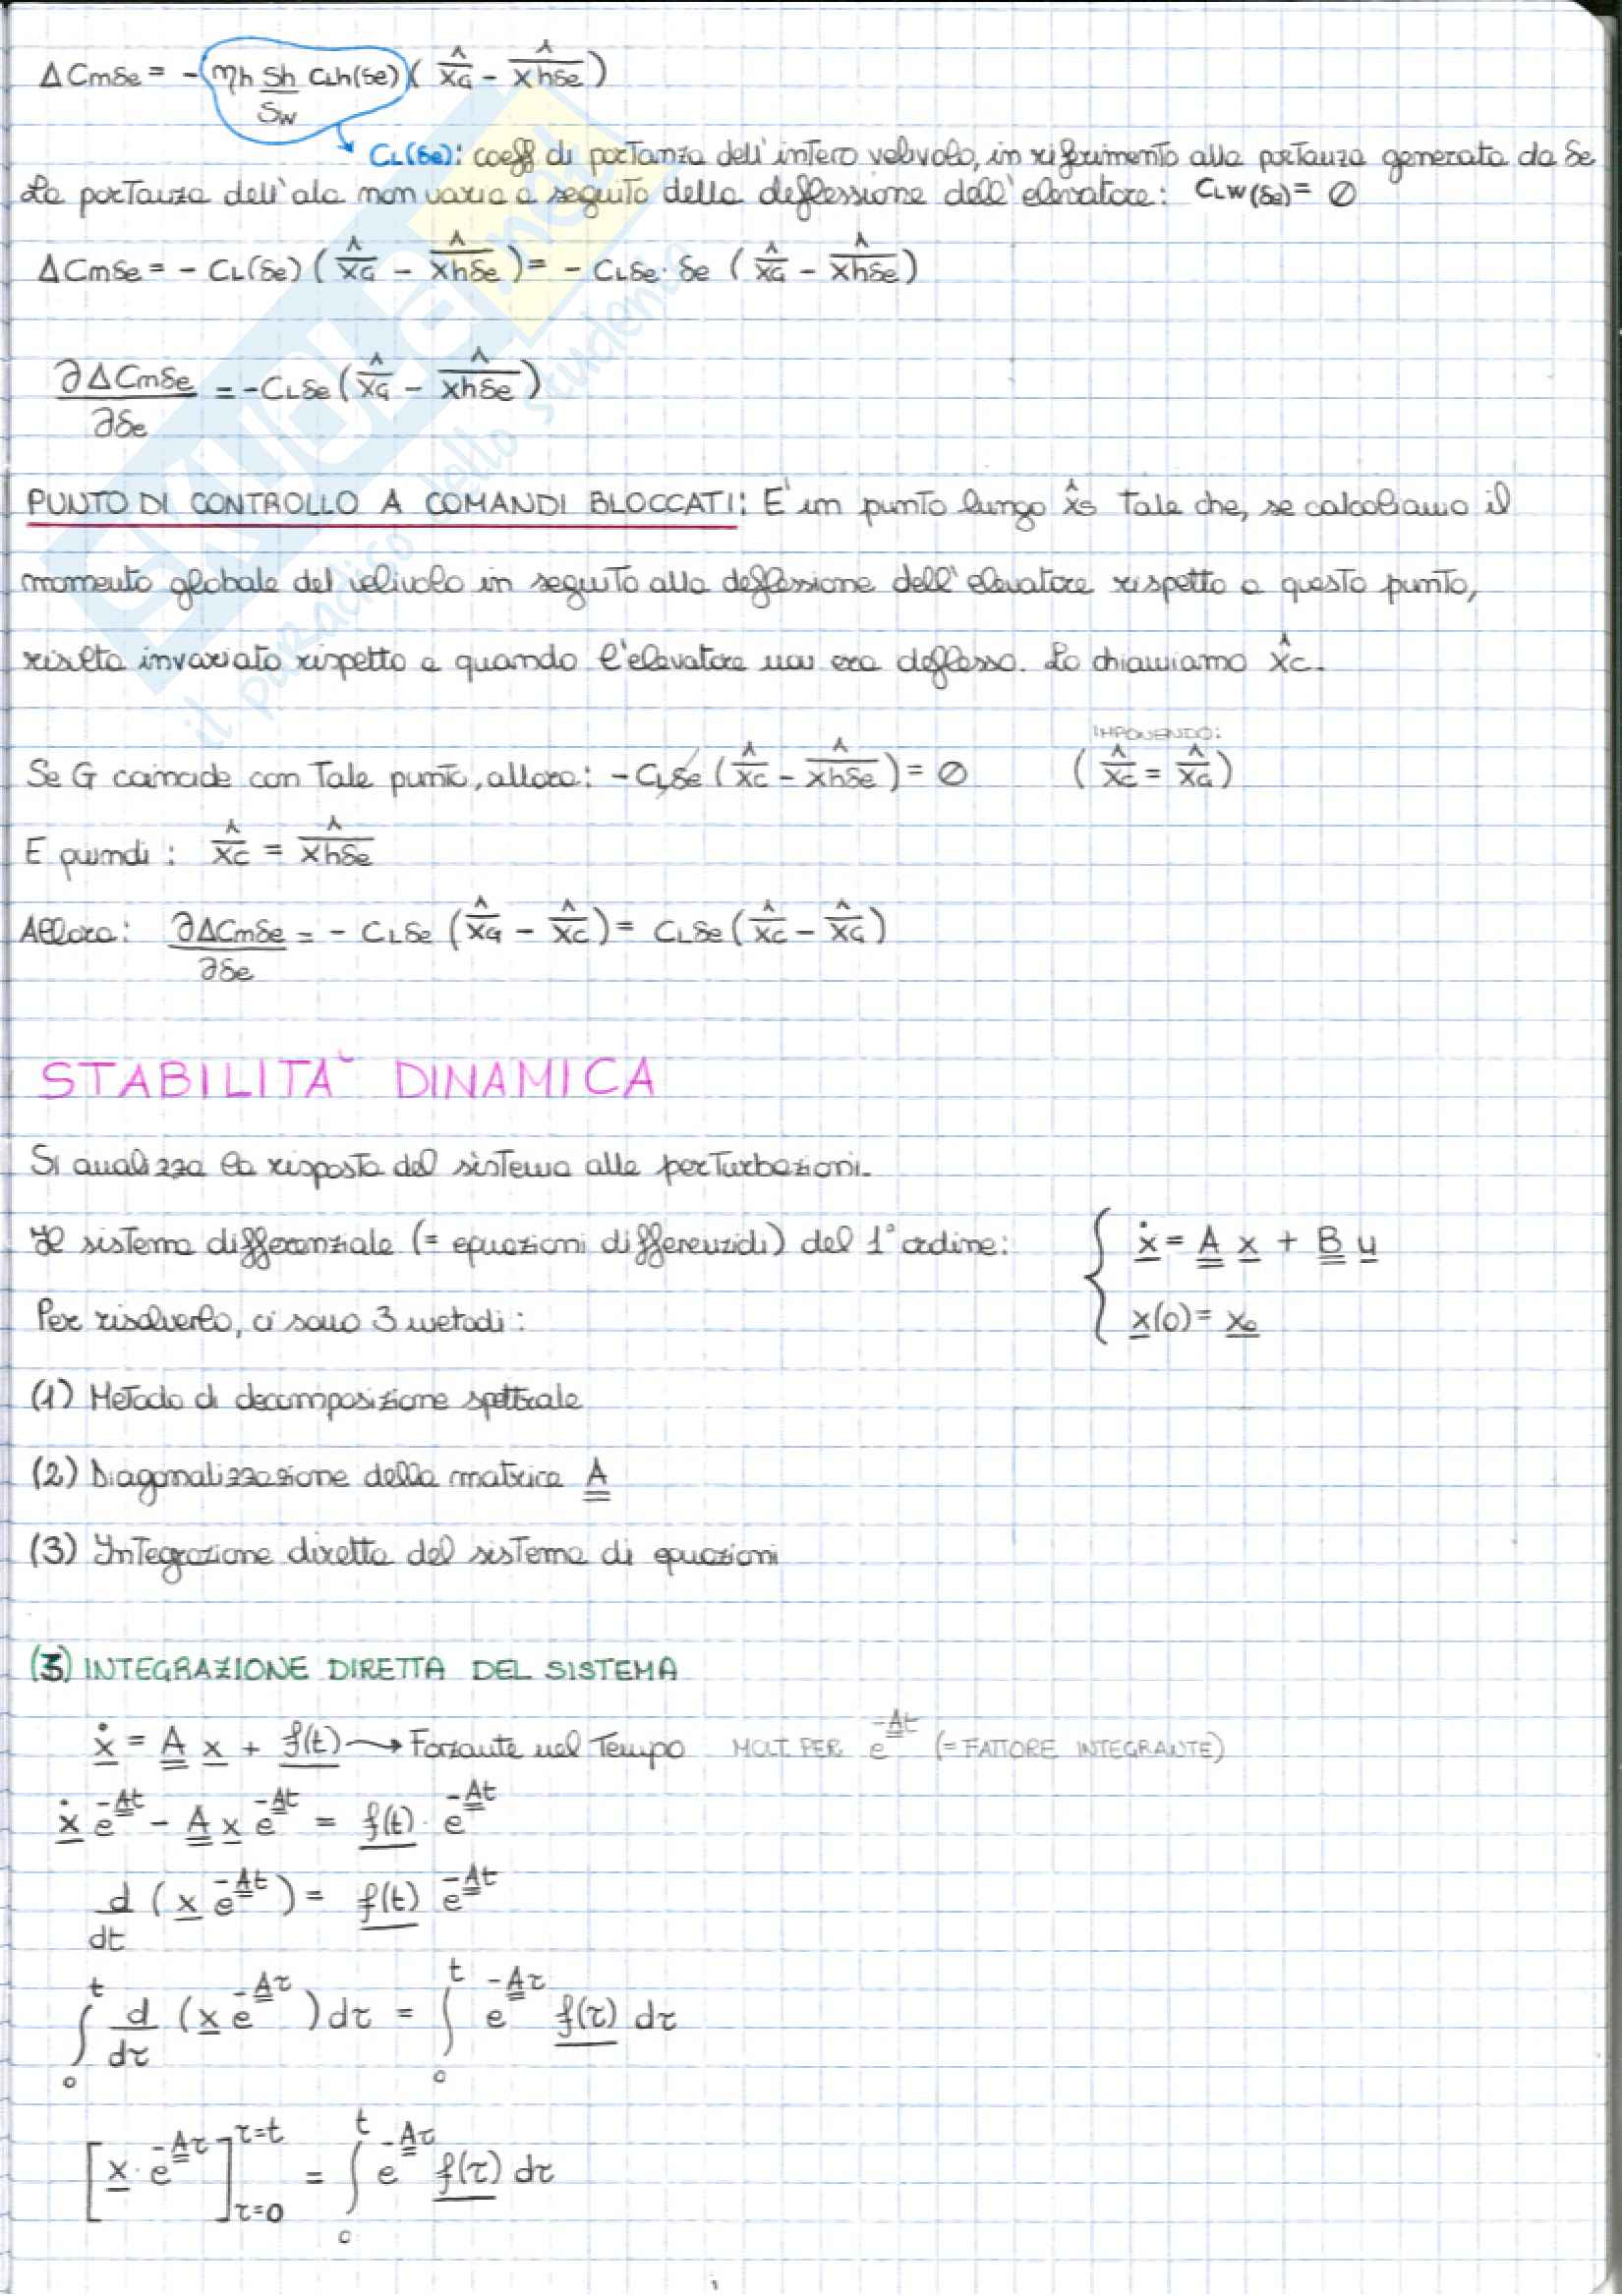 ΔCmδe = - ηh Sh/Sw CLh(δe) ( x̂G - x̂hδe )
CL(δe): coeff di portanza dell'intero velivolo, in riferimento alla portanza generata da δe
La portanza dell'ala non varia a seguito della deflessione dell'elevatore: CLW(δe) = ∅
ΔCmδe = - CL(δe) ( x̂G - x̂hδe ) = - CLδe · δe ( x̂G - x̂hδe )
∂ΔCmδe/∂δe = - CLδe ( x̂G - x̂hδe )
PUNTO DI CONTROLLO A COMANDI BLOCCATI: E' un punto lungo x̂s tale che, se calcoliamo il
momento globale del velivolo in seguito alla deflessione dell'elevatore rispetto a questo punto,
risulta invariato rispetto a quando l'elevatore non era deflesso. Lo chiamiamo x̂c.
IMPONENDO:
Se G coincide con tale punto, allora: - CLδe ( x̂c - x̂hδe ) = ∅ ( x̂c = x̂G )
E quindi: x̂c = x̂hδe
Allora: ∂ΔCmδe/∂δe = - CLδe ( x̂G - x̂c ) = CLδe ( x̂c - x̂G )
STABILITA' DINAMICA
Si analizza la risposta del sistema alle perturbazioni.
Il sistema differenziale (= equazioni differenziali) del 1° ordine: { ẋ = A x + B u
Per risolverlo, ci sono 3 metodi: x(0) = x0
(1) Metodo di decomposizione spettrale
(2) Diagonalizzazione della matrice A
(3) Integrazione diretta del sistema di equazioni
(3) INTEGRAZIONE DIRETTA DEL SISTEMA
ẋ = A x + f(t) → Forzante nel tempo MOLT. PER e^-At (= FATTORE INTEGRANTE)
ẋ e^-At - A x e^-At = f(t) · e^-At
d/dt ( x e^-At ) = f(t) e^-At
∫0^t d/dτ ( x e^-Aτ ) dτ = ∫0^t e^-Aτ f(τ) dτ
[ x · e^-Aτ ] τ=0 ^τ=t = ∫0^t e^-Aτ f(τ) dτ
SKUOLA.net
il paradiso dello studente